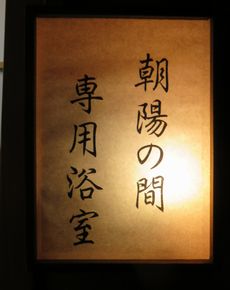 朝陽の間
専用浴室